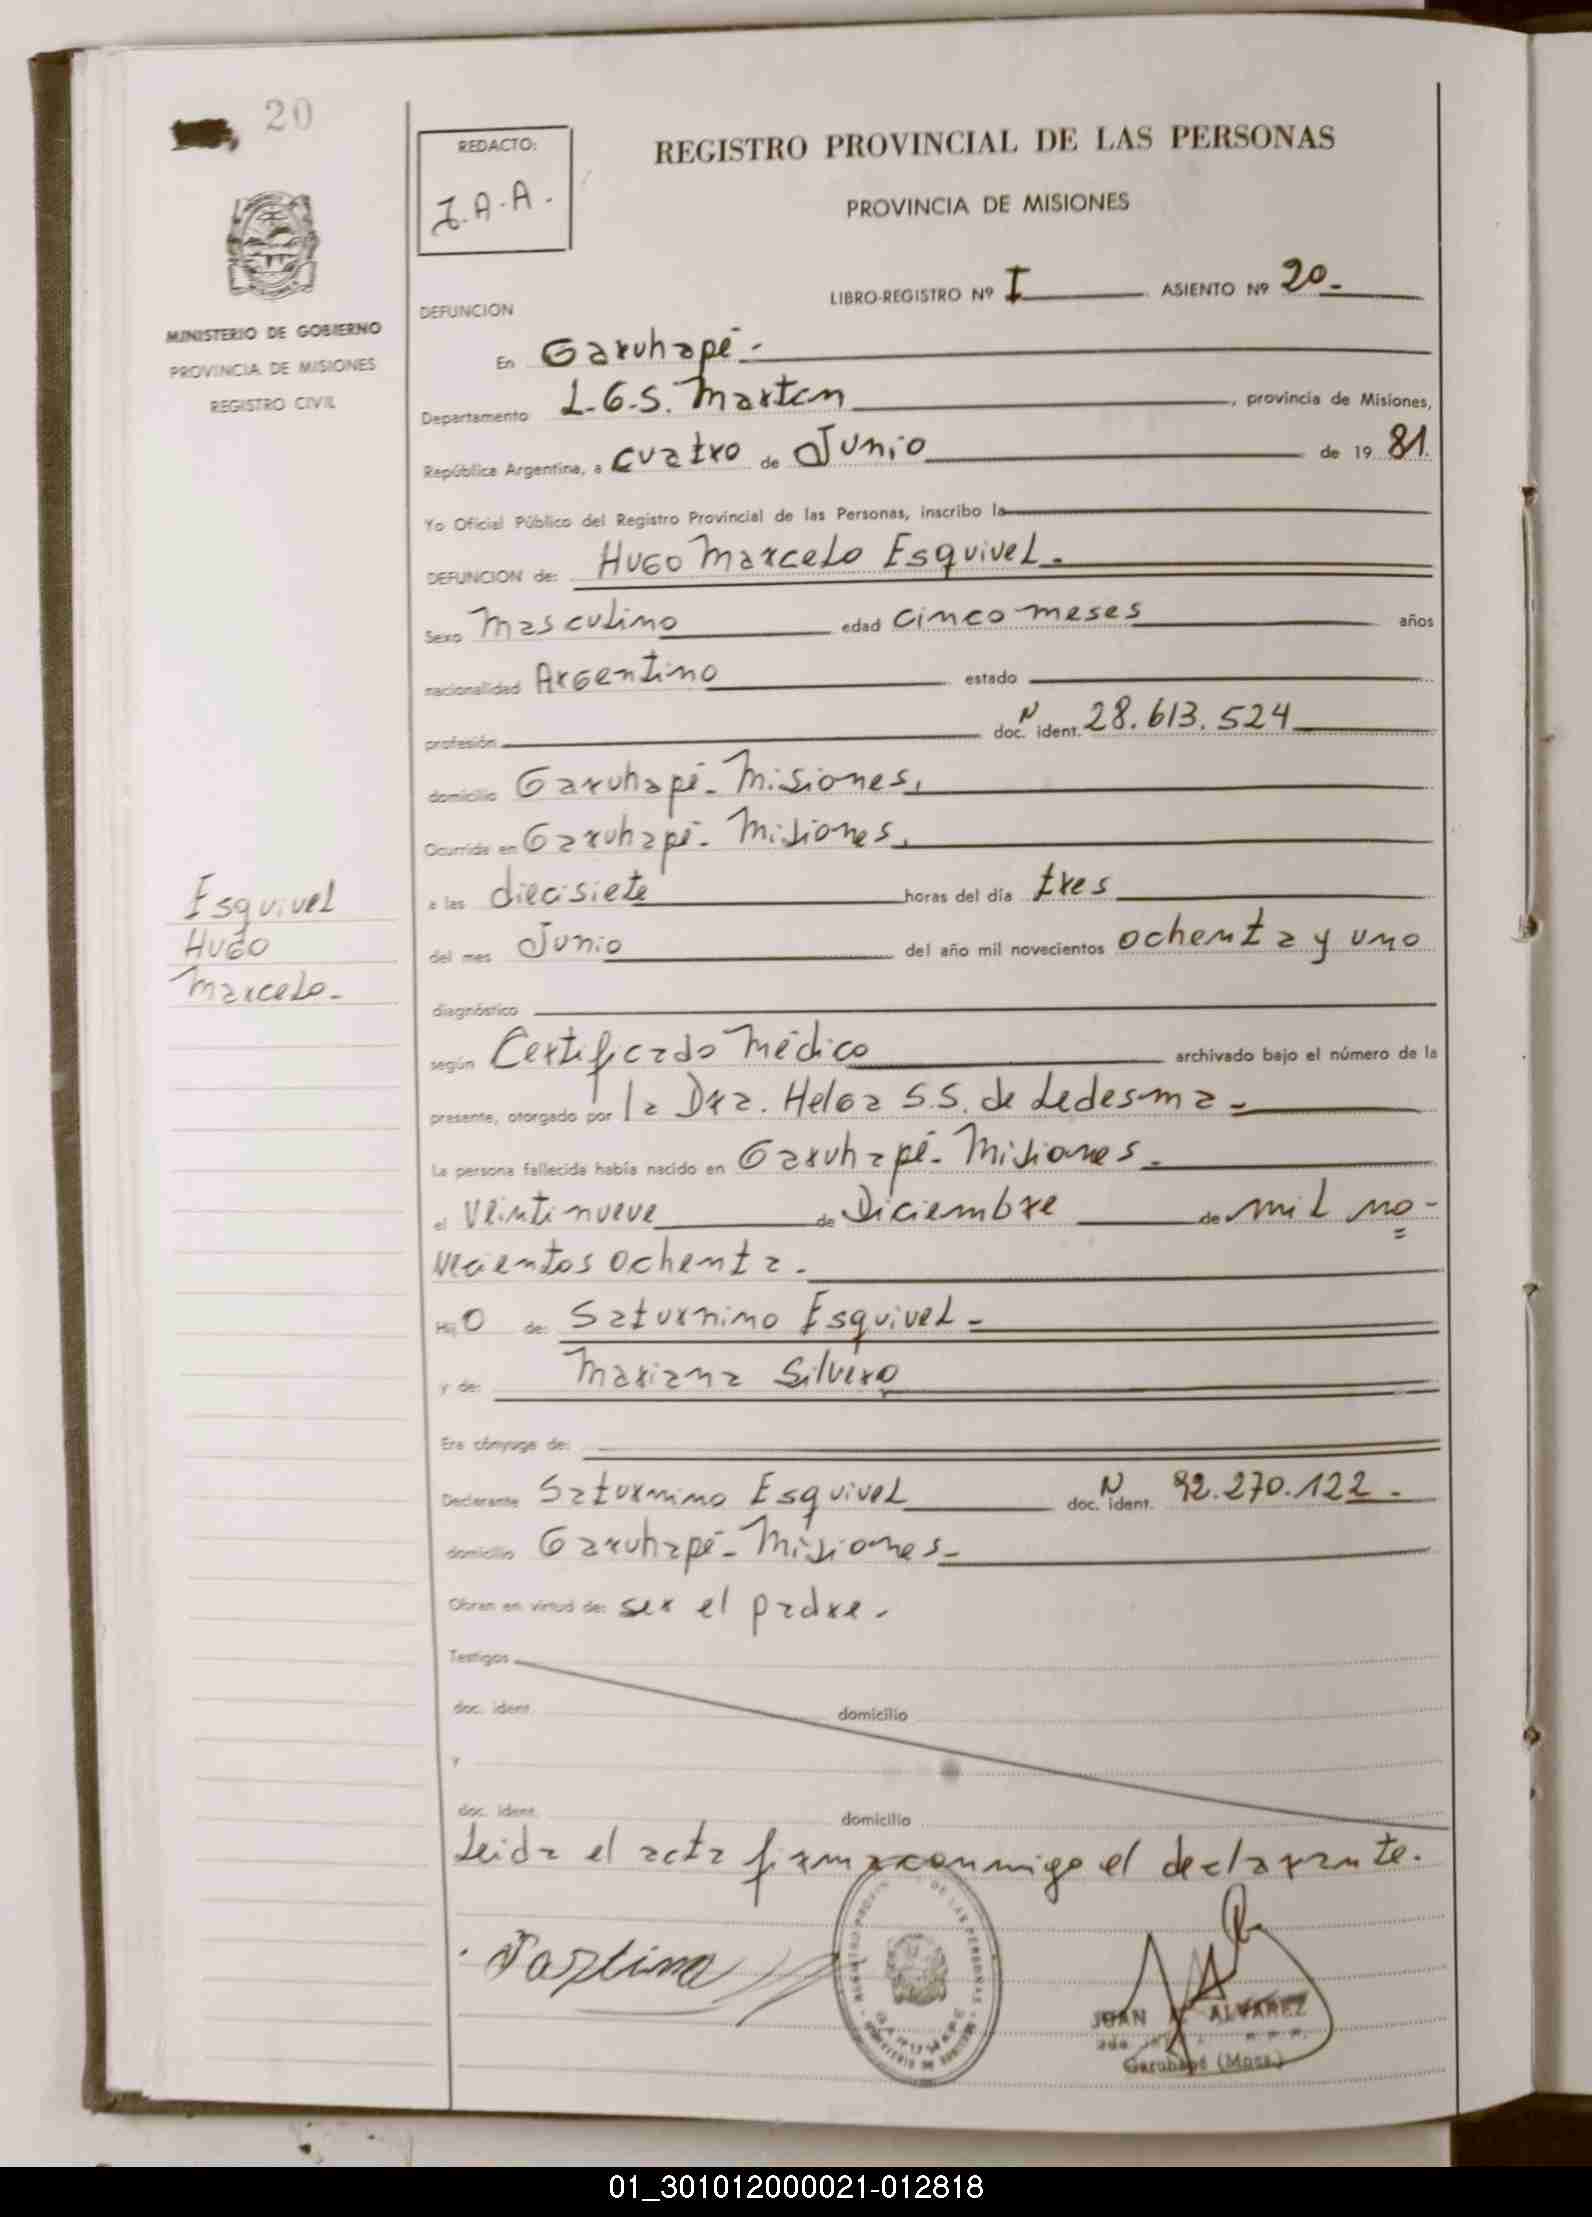 20
REDACTO:
J.A.A.
REGISTRO PROVINCIAL DE LAS PERSONAS
PROVINCIA DE MISIONES
MINISTERIO DE GOBIERNO
PROVINCIA DE MISIONES
REGISTRO CIVIL
LIBRO-REGISTRO Nº I ASIENTO Nº 20.-
DEFUNCION
En Garuhapé.-
Departamento L.G.S. Martin, provincia de Misiones,
República Argentina, a cuatro de Junio de 19 81.
Yo Oficial Público del Registro Provincial de las Personas, inscribo la
DEFUNCION de: Hugo Marcelo Esquivel.-
Sexo Masculino edad cinco meses años
nacionalidad Argentino estado
profesión doc. N ident. 28.613.524
domicilio Garuhapé- Misiones,
Ocurrida en Garuhapé- Misiones,
a las diecisiete horas del día tres
del mes Junio del año mil novecientos ochenta y uno
Esquivel
Hugo
Marcelo.-
diagnóstico
según Certificado Médico archivado bajo el número de la
presente, otorgado por la Dra. Helga S.S. de Ledesma-
La persona fallecida había nacido en Garuhapé- Misiones.-
el Veintinueve de Diciembre de mil no-
vecientos ochenta.-
Hijo de: Saturnino Esquivel-
y de: Mariana Silvero
Era cónyuge de:
Declarante Saturnino Esquivel doc. N ident. 92.270.122.-
domicilio Garuhapé- Misiones-
Obran en virtud de: ser el padre.-
Testigos
doc. ident. domicilio
y
doc. ident. domicilio
Leida el acta firma conmigo el declarante.
DE LAS PERSONAS
GARUHAPE
JUAN ALVAREZ
Garuhapé (Mnes.)
01_301012000021-012818